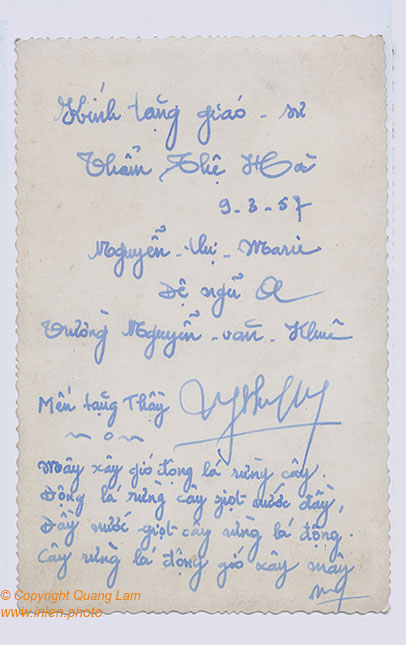 Kính tặng giáo - sư
Thẩm Thệ Hà
9-3-57
Nguyễn - thị - Marie
Đệ ngũ A
Trường Nguyễn - văn - Khuê
Mến tặng Thầy
Mây xây gió động lá rừng cây.
Động lá rừng cây giọt nước đầy,
Đầy nước giọt cây rừng lá động.
Cây rừng lá động gió xây mây
© Copyright Quang Lam
www.inlen.photo